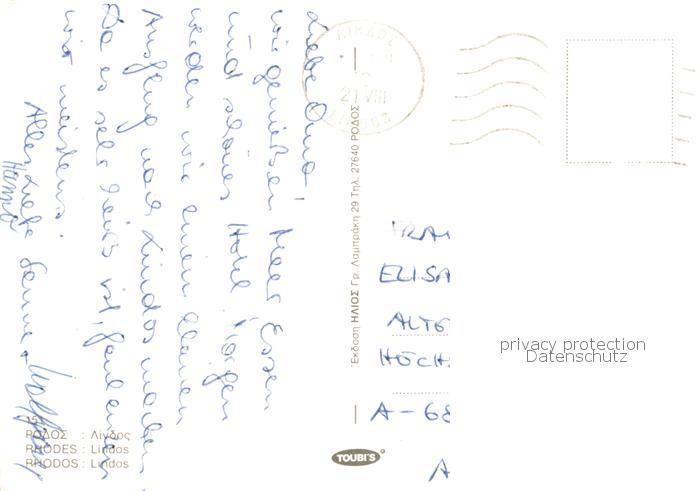 Liebe Oma!
wir genießen Meer Essen
und schönes Hotel. Morgen
werden wir einen kleinen
Ausflug nach Lindos machen
Da es sehr heiß ist, faulenzen
wir meistens.
Alles Liebe
Hanna
151
ΡΟΔΟΣ : Λίνδος
RHODES : Lindos
RHODOS : Lindos
Έκδοση ΗΛΙΟΣ Γρ. Λαμπράκη 29 Τηλ. 27640 ΡΟΔΟΣ
TOUBI'S
ΛΙΝΔΟΣ
21 VIII
LINDOS
FRAU
ELISA
ALTE
HÖCH
A-68
A
privacy protection
Datenschutz